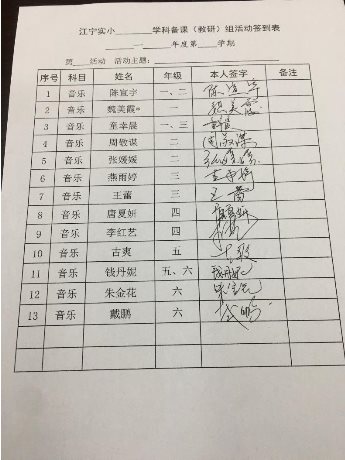 江宁实小______学科备课（教研）组活动签到表
____一____年度第____学期
第___活动 活动主题：
序号 科目 姓名 年级 本人签字 备注
1 音乐 陈宣宇 一、二 陈宣宇
2 音乐 魏美霞 一 魏美霞
3 音乐 童幸晨 一、三
4 音乐 周敬谋 二 周敬谋
5 音乐 张媛媛 二 张媛媛
6 音乐 燕雨婷 三
7 音乐 王蕾 三 王蕾
8 音乐 唐夏妍 四
9 音乐 李红艺 四
10 音乐 古爽 五
11 音乐 钱丹妮 五、六
12 音乐 朱金花 六
13 音乐 戴鹏 六